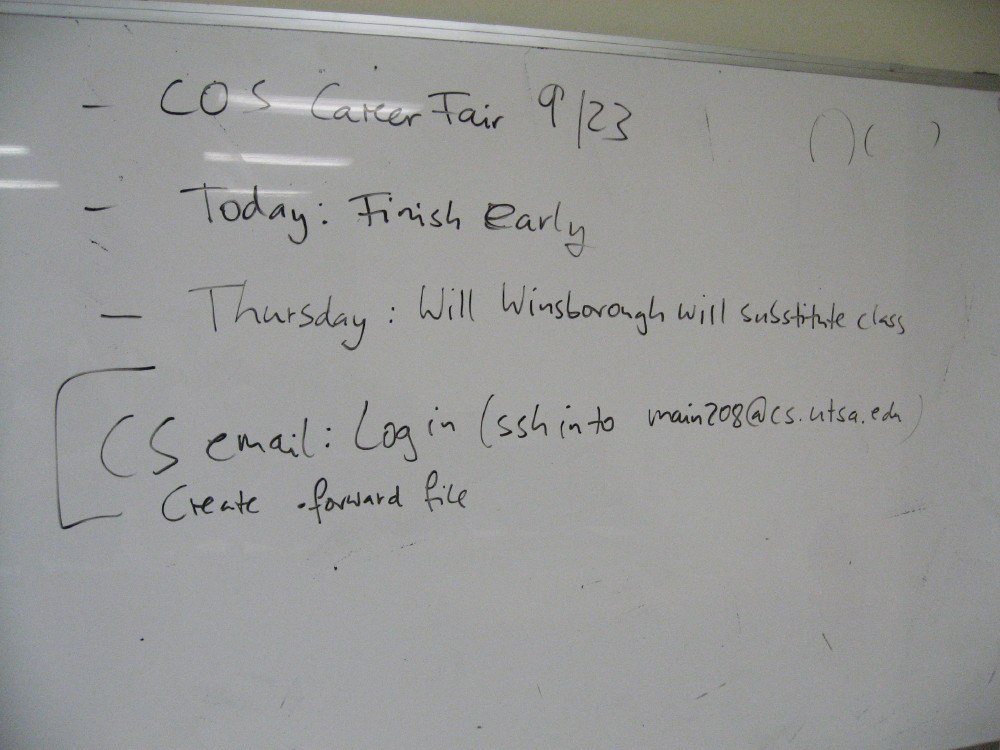 - COS Career Fair 9/23
- Today: Finish early
- Thursday: Will Winsborough will substitute class
CS email: Log in (ssh into main208@cs.utsa.edu)
Create .forward file